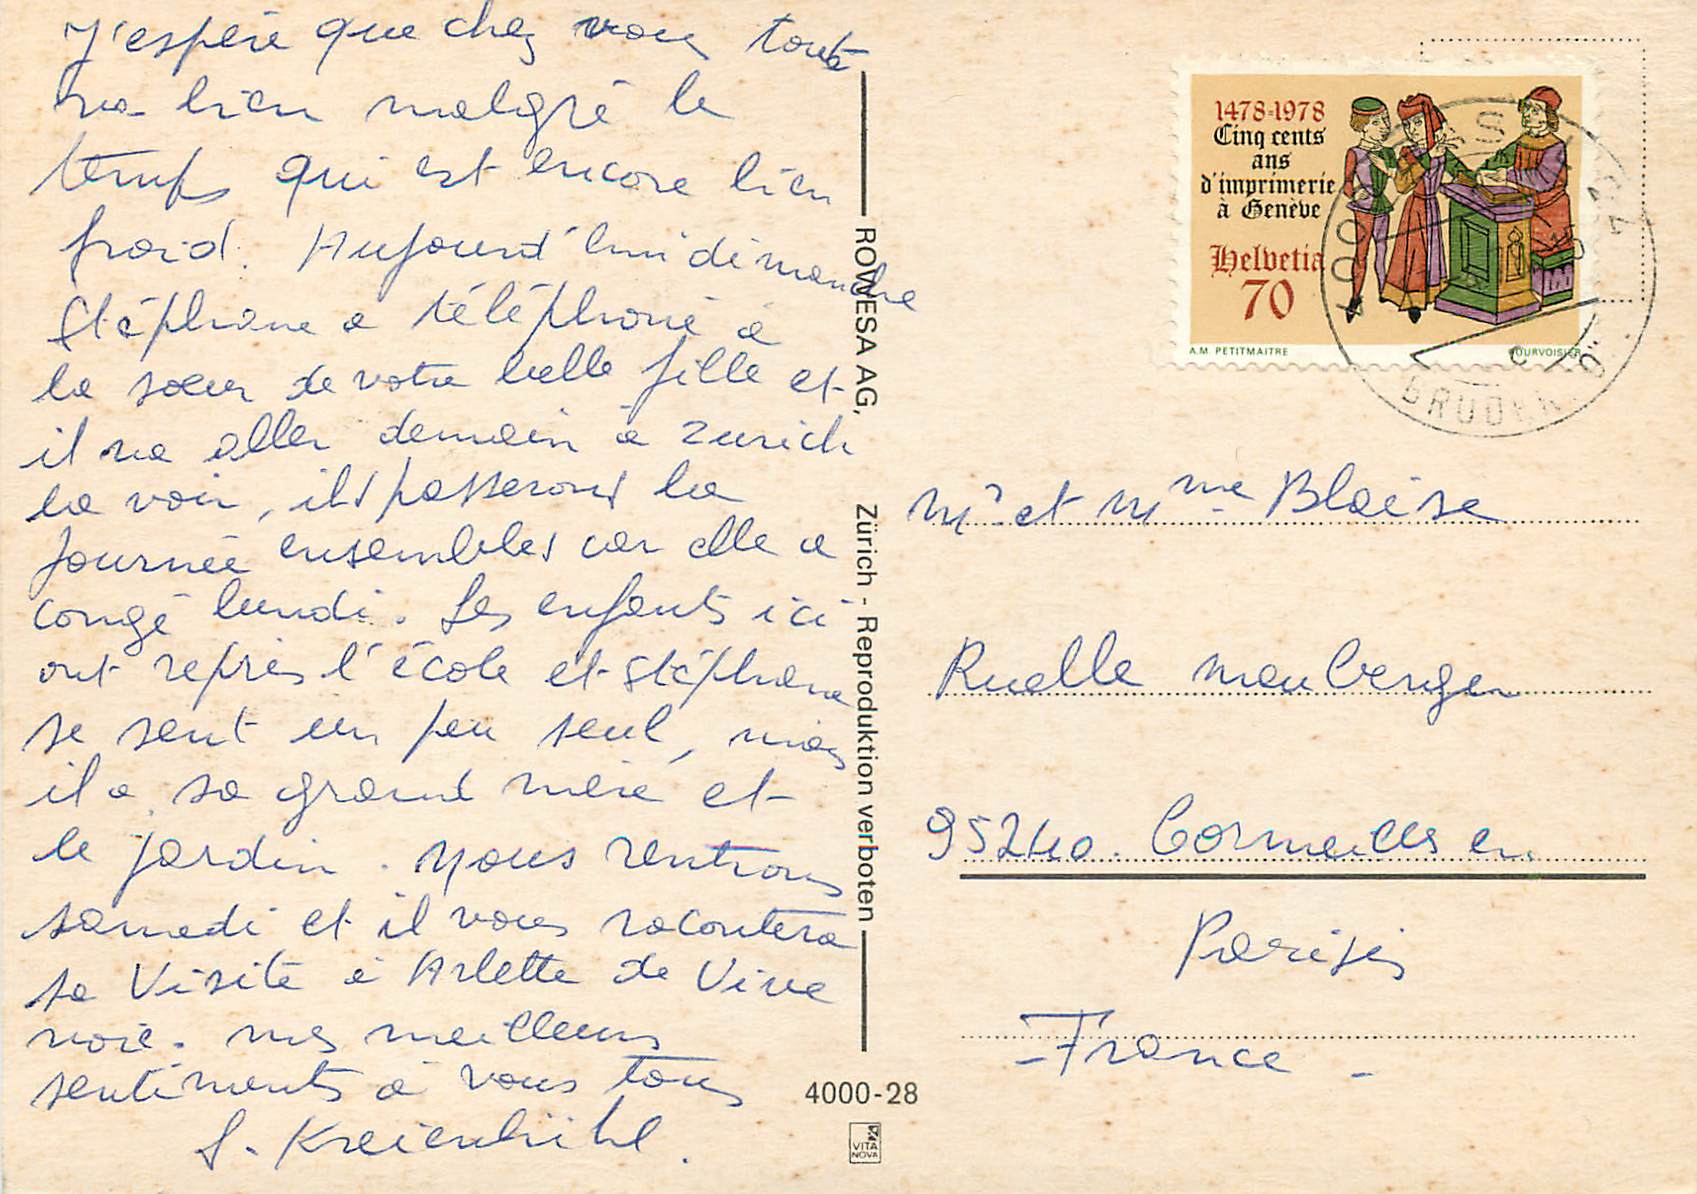 J'espère que chez vous tout
va bien malgré le
temps qui est encore bien
froid. Aujourd'hui dimanche
Stéphane a téléphoné à
la sœur de votre belle fille et
il va aller demain à Zurich
la voir, ils passerons la
journée ensembles car elle a
congé lundi. Les enfants ici
ont repris l'école et Stéphane
se sent un peu seul, mais
il a sa grand mère et
le jardin. Nous rentrons
samedi et il vous racontera
sa visite à Arlette de vive
voie. mes meilleurs
sentiments à vous tous
S. Kreienbühl.
ROWESA AG, Zürich - Reproduktion verboten
4000-28
VITA
NOVA
1478-1978
Cinq cents
ans
d'imprimerie
à Genève
Helvetia
70
A.M PETITMAITRE COURVOISIER
BRUDER
Mr et Mme Blaise
Ruelle mauberger
95240. Cormeilles en
Parisis
- France -